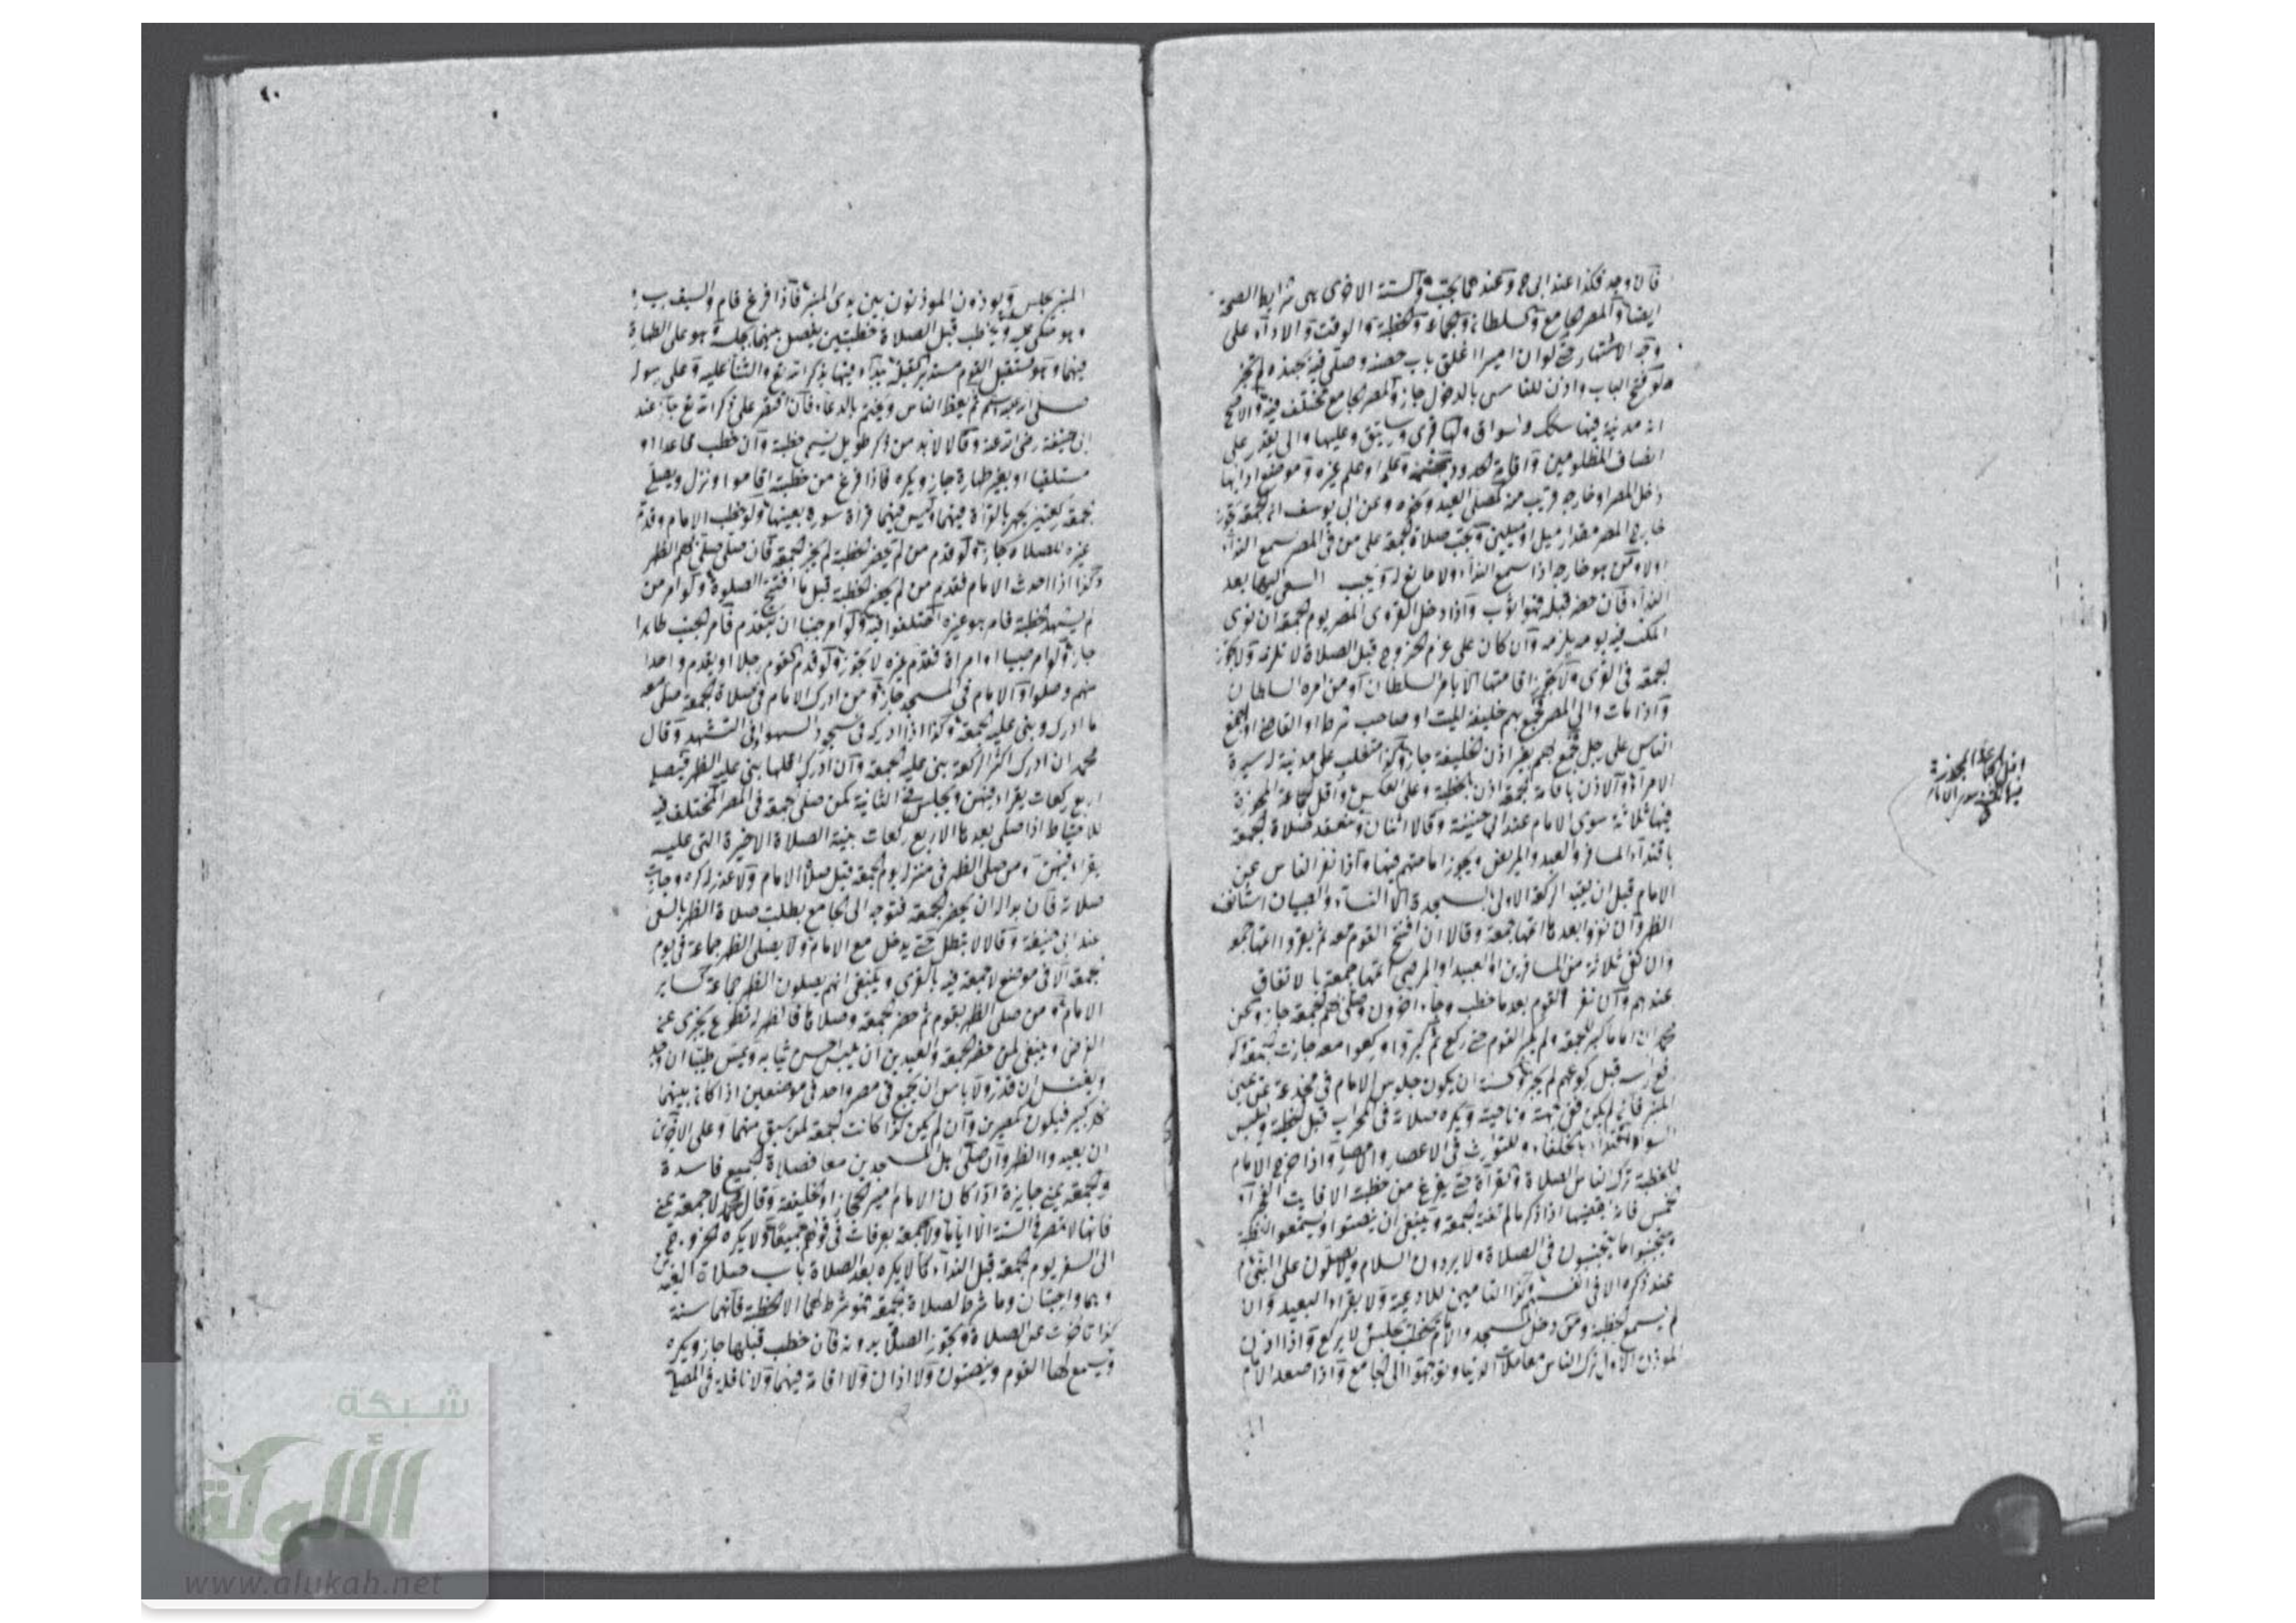 فان وجد فكذا عند ابي ح وعندهما يجب والستة الاخرى هى شرايط الصحة
ايضا المصر الجامع والسلطان والجماعة والخطبة والوقت والاداء على
وجه الاشتهار حتى لو ان اميرا اغلق باب حصنه وصلى فيه بجنده لم تجز
ولو فتح الباب واذن للناس بالدخول جاز والمصر الجامع مختلف فيه والاصح
انه مدينة فيها سكك واسواق ولها قرى ورساتيق وعليها والى يقدر على
انصاف المظلومين واقامة الحدود بحشمة وعلمه او علم غيره وموضع ادايها
داخل المصر او خارجه قريب منه كمصلى العيد ونحوه وعن ابى يوسف ان الجمعة تجوز
خارج المصر مقدار ميل او ميلين وتجب صلاة الجمعة على من فى المصر سمع النداء
اولا ومن هو خارجه اذا سمع النداء ولا مانع له ويجب السعى اليها بعد
النداء فان حضر قبله فهو اثوب واذا دخل القروى المصر يوم الجمعة ان نوى
المكث فيه يومه يلزمه وان كان على عزم الخروج قبل الصلاة لا تلزمه ولا تجوز
الجمعة فى القرى ولا تجوز اقامتها الا بامر السلطان او من امره السلطان
واذا مات والى المصر فجمع بهم خليفة الميت او صاحب شرط او القاضى او اجتمع
الناس على رجل فجمع بهم بغير اذن الخليفة جاز وكذا متغلب على مدينة له سيرة
الامراء والاذن باقامة الجمعة اذن بالخطبة وعلى العكس واقل الجماعة المجوزة
فيها ثلاثة سوى الامام عند ابى حنيفة وقالا اثنان وتنعقد صلاة الجمعة
باقتداء المسافر والعبد والمريض ويجوز امامتهم فيها واذا نفر الناس عن
الامام قبل ان يقيد الركعة الاولى بالسجدة الا النساء والصبيان استانف
الظهر وان نفروا بعدها اتمها جمعة وقالا ان افتتح القوم معه ثم نفروا اتمها جمعة
وان بقى ثلاثة من المسافرين او العبيد او المرضى اتمها جمعة بالاتفاق
عندهم وان نفر القوم بعد ما خطب وجاء اخرون وصلى بهم الجمعة جاز وعن
محمد ان اماما كبر للجمعة ولم يكبر القوم حتى ركع ثم كبروا وركعوا معه جازت
رفع راسه قبل ركوعهم لم يجز والسنة ان يكون جلوس الامام فى مخدعة عن يمين
المنبر فان لم يكن ففى جهة وناحية ويكره صلاته فى المحراب قبل الخطبة ولبس
السواد اقتداء بالخلفاء وللتوارث فى الاعصار والامصار واذا خرج الامام
للخطبة ترك الناس الصلاة والقراءة حتى يفرغ من خطبته الا فايت الفجر او
الخمس فانه يقضيها اذا ذكر ما لم تفته الجمعة وينبغى ان ينصتوا ويستمعوا الخطبة
ويجتنبوا ما يجتنبون فى الصلاة ولا يردون السلام ولا يصلون على النبى
عند ذكره الا فى انفسهم وكذا التامين للادعية ولا يقرا البعيد وان
لم يسمع الخطبة ومن دخل المسجد والامام يخطب يجلس لا يركع واذا اذن
الموذن الاول ترك الناس معاملات الدنيا وتوجهوا الى الجامع واذا صعد الامام
اقل الجماعة المجوزة
فيها ثلثة سوى الامام
المنبر جلس ويوذون الموذنون بين يدى المنبر فاذا فرغ قام والسيف بيده
وهو متكى عليه ويخطب قبل الصلاة خطبتين يفصل بينهما بجلسة وهو على الطهارة
فيهما وهو مستقبل القوم مستدبر القبلة يبدا فيها بذكر الله تع والثناء عليه وعلى رسوله
صلى الله عليه وسلم ثم يعظ الناس ويختم بالدعاء فان اقتصر على ذكر الله تع جاز عند
ابى حنيفة رضى الله عنه وقالا لا بد من ذكر طويل يسمى خطبة وان خطب قاعدا او
مستلقيا او بغير طهارة جاز ويكره فاذا فرغ من خطبته اقاموا ونزل ويصلى
الجمعة ركعتين يجهر بالقراة فيهما وليس فيهما قراة سورة بعينها ولو خطب الامام وقدم
غيره للصلاة جاز ولو قدم من لم يحضر الخطبة لم يجز الجمعة فان صلى صلى بهم الظهر
وكذا اذا احدث الامام فقدم من لم يحضر الخطبة قبل ما افتتح الصلوة ولو امر من
لم يشهد الخطبة فامر هو غيره اختلفوا فيه ولو امر جنبا ان يتقدم فامر الجنب طاهرا
جاز ولو امر صبيا او امراة فقدم غيره لا يجوز ولو قدم القوم رجلا او يقدم واحدا
منهم وصلوا والامام فى المسجد جاز ومن ادرك الامام فى صلاة الجمعة صلى معه
ما ادرك وبنى عليه الجمعة وكذا اذا ادركه فى سجود السهو او فى التشهد وقال
محمد ان ادرك اكثر الركعة بنى عليه الجمعة وان ادرك اقلها بنى عليه الظهر فيصلى
اربع ركعات يقرا فيهن ويجلس فى الثانية كمن صلى الجمعة فى المصر المختلف فيه
للاحتياط اذا صلى بعدها الاربع ركعات بنية الصلاة الاخيرة التى عليه
يقراء فيهن ومن صلى الظهر فى منزله يوم الجمعة قبل صلاة الامام ولا عذر له كره وجازت
صلاته فان بدا له ان يحضر الجمعة فتوجه الى الجامع بطلت صلاة الظهر بالسعى
عند ابى حنيفة وقالا لا تبطل حتى يدخل مع الامام ولا يصلى الظهر جماعة فى يوم
الجمعة الا فى موضع لا جمعة فيه بالقرى وينبغى انهم يصلون الظهر جماعة كساير
الامام ومن صلى الظهر بقوم ثم حضر الجمعة وصلاها فالظهر له تطوع يجزى عن
الفرض وينبغى لمن حضر الجمعة والعيدين ان يلبس احسن ثيابه ويمس طيبا ان وجد
ويغتسل ان قدر ولا باس ان يجمع فى مصر واحد فى موضعين اذا كان بينهما
نهر كبير فيكون كمصرين وان لم يكن كذا كانت الجمعة لمن سبق منهما وعلى الاخرين
ان يعيدوا الظهر وان صلى اهل المسجدين معا فصلاة الجميع فاسدة
والجمعة بمنى جايزة اذا كان الامام امير الحجاز او الخليفة وقال محمد لا جمعة بمنى
فانها لا تمصر فى السنة الا اياما ولا جمعة بعرفات فى قولهم جميعا ولا يكره الخروج
الى السفر يوم الجمعة قبل النداء كما لا يكره بعد الصلاة باب صلاة العيدين
وهما واجبتان وما شرط لصلاة الجمعة فهو شرط لهما الا الخطبة فانهما سنة
كذا تاخرت عن الصلاة وتجوز الصلاة بدونه فان خطب قبلها جاز ويكره
ويسمع لها القوم وينصتون ولا اذان ولا اقامة فيهما ولا نافلة فى المصلى
شبكة
الألوكة
www.alukah.net